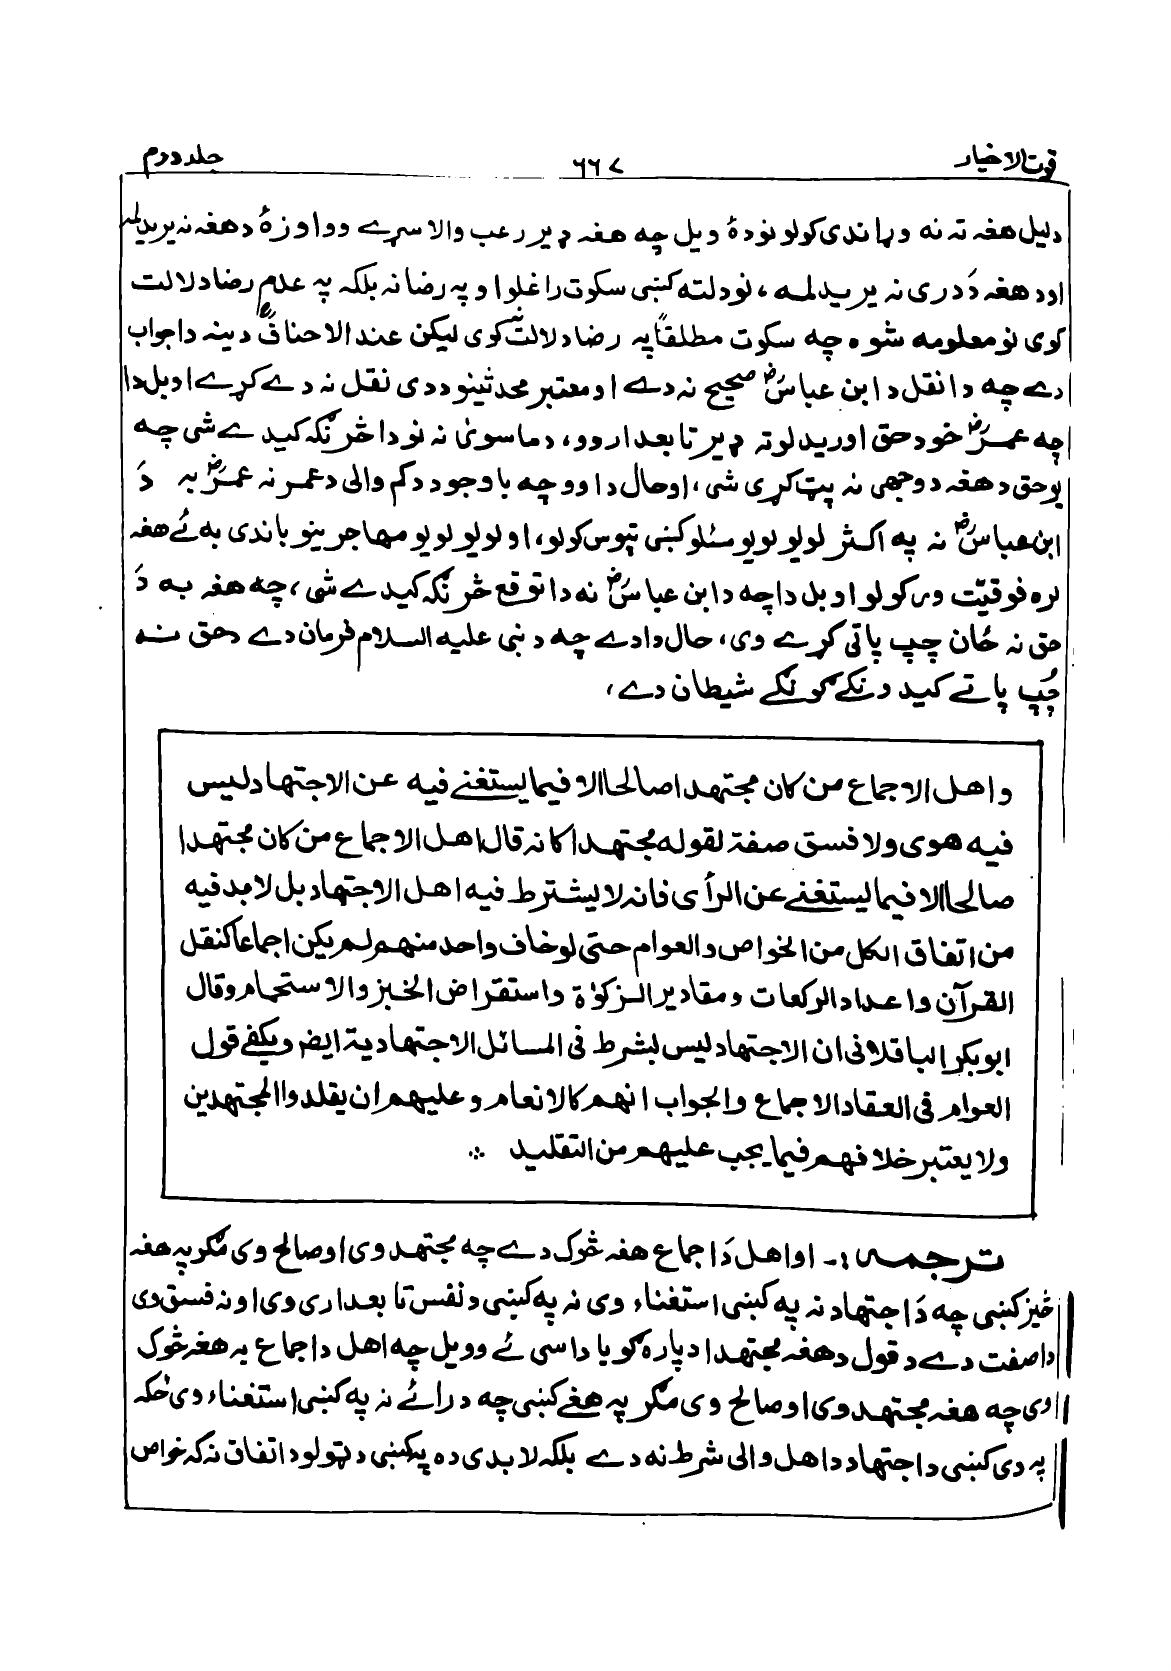 قوت الاخیار ۶۶۷ جلد دورم
دلیل هغه ته نه وړاندی کولو نو دۀ ویل چه هغه ډیر رعب والا سړے وو او زۀ د هغه نه یریدلم
او د هغه دَ دری نه یریدلمه، نو دلته کښی سکوت راغلو او په رضا نه بلکه په عدم رضا دلالت
کوی نو معلومه شوه چه سکوت مطلقاً په رضا دلالت نه کوی لیکن عند الاحناف دینه دا جواب
دے چه دا نقل د ابن عباسؓ صحیح نه دے او معتبر محدثینو ددی نقل نه دے کړے او بل دا
چه عمرؓ خود حق اوریدلو ته ډیر تابعدار وو، د ماسویٰ نه نو دا څرنګه کیدے شی چه
یو حق د هغه د وجهی نه پټ کړی شی، او حال دا وو چه باوجود د کم والی د عمر نه عمرؓ به دَ
ابن عباسؓ نه په اکثر لویو لویو مسئلو کښی تپوس کولو، او لویو لویو مهاجرینو باندی به ئے هغه
لره فوقیّت ورکولو او بل دا چه د ابن عباسؓ نه دا توقع څرنګه کیدے شی، چه هغه به دَ
حق نه ځان چپ پاتی کړے وی، حال دادے چه د نبی علیه السلام فرمان دے دحق نه
چُپ پاتے کیدونکے ګونګے شیطان دے،
واهل الاجماع من کان مجتهدا صالحا الا فیما یستغنے فیه عن الاجتهاد لیس
فیه هوی ولا فسق صفة لقوله مجتهدا کانه قال اهل الاجماع من کان مجتهدا
صالحا الا فیما لیستغنے عن الرأی فانه لا یشترط فیه اهل الاجتهاد بل لا بد فیه
من اتفاق الکل من الخواص والعوام حتی لو خاف واحد منهم لم یکن اجماعا کنقل
القرآن واعداد الرکعات ومقادیر الزکوٰة واستقراض الخبز والاستحمام وقال
ابوبکر الباقلانی ان الاجتهاد لیس بشرط فی المسائل الاجتهادیة ایضا ویکفے قول
العوام فی العقاد الاجماع والجواب انهم کالانعام وعلیهم ان یقلدوا المجتهدین
ولا یعتبر خلافهم فیما یجب علیهم من التقلید ∴
ترجمه:۔ او اهل دَ اجماع هغه څوک دے چه مجتهد وی او صالح وی مګر په هغه
څیز کښی چه دَ اجتهاد نه په کښی استغناء وی نه په کښی د نفس تابعداری وی او نه فسق وی
دا صفت دے د قول د هغه مجتهدا دپاره ګویا داسی ئے وویل چه اهل د اجماع به هغه څوک
وی چه هغه مجتهد وی او صالح وی مګر په هغے کښی چه د رائے نه په کښی استغناء وی ځکه
په دی کښی د اجتهاد د اهل والی شرط نه دے بلکه لابدی ده پکښی د ټولو د اتفاق نه که خواص